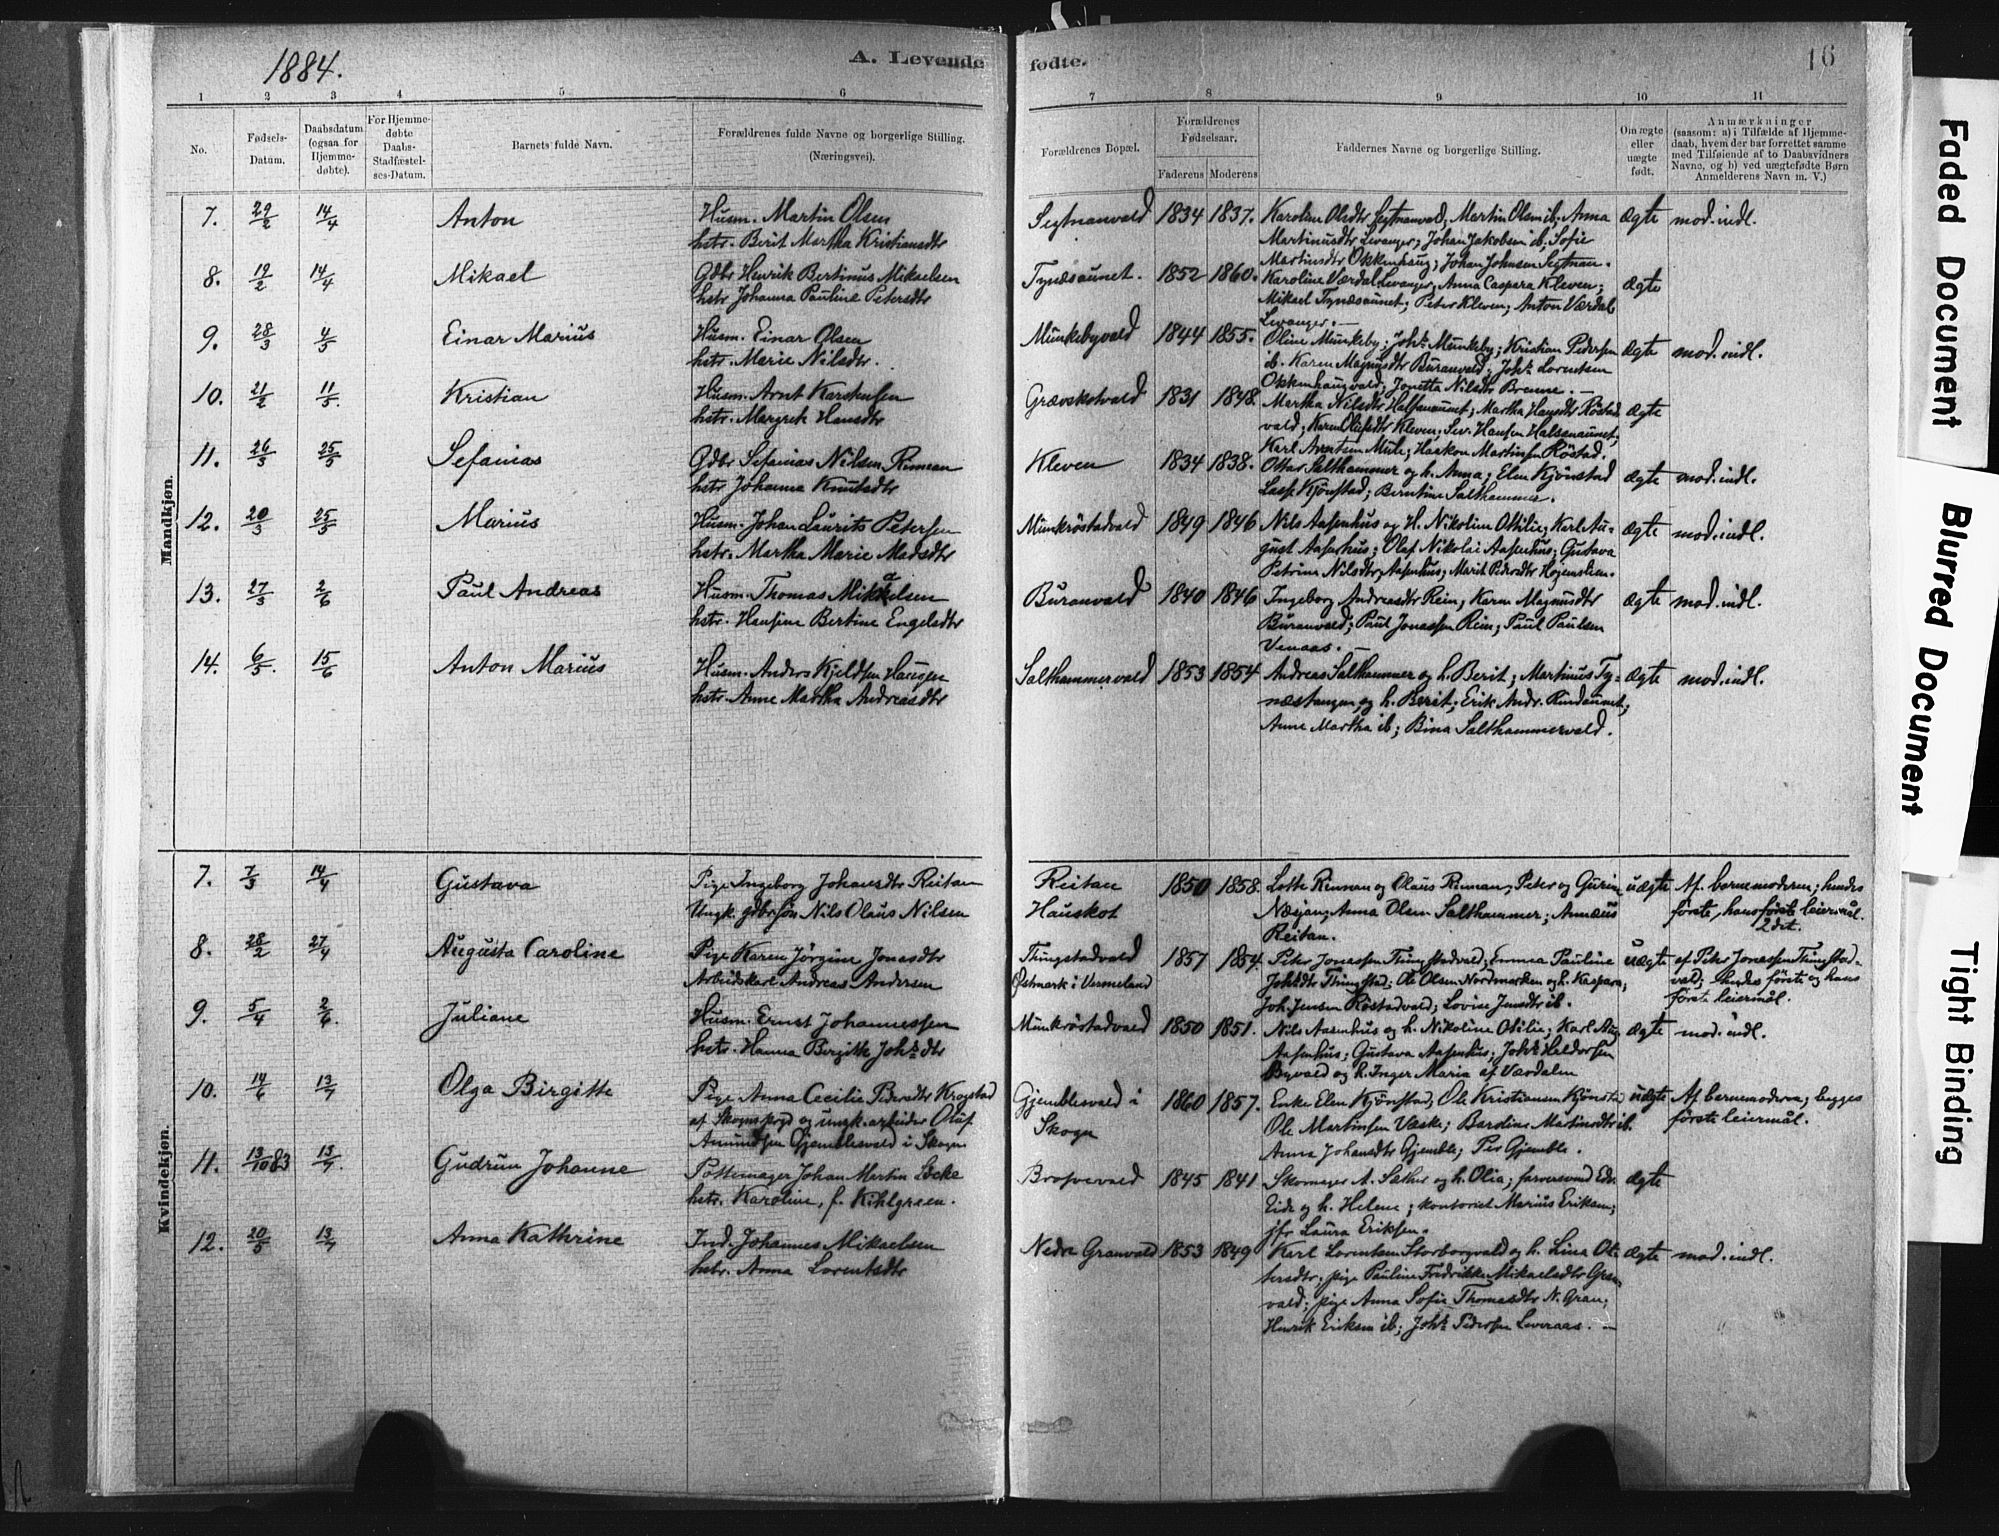 1884.
A. Levende
fødte.
16
1 2 3 4 5 6
7 8 9 10 11
No.
Fødsels-
Datum.
Daabsdatum
(ogsaa for
Hjemme-
døbte).
For Hjemme-
døbte
Daabs-
Stadfæstel-
ses-Datum.
Barnets fulde Navn.
Forældrenes fulde Navne og borgerlige Stilling.
(Næringsvei).
Forældrenes Bopæl.
Forældrenes
Fødselsaar.
Faderens Moderens
Faddernes Navne og borgerlige Stilling.
Om ægte
eller
uægte
født.
Anmærkninger
(saasom: a) i Tilfælde af Hjemme-
daab, hvem der har forrettet samme
med Tilføiende af to Daabsvidners
Navne, og b) ved uægtefødte Børn
Anmelderens Navn m. V.)
Mandkjøn.
7. 29/2 14/4 Anton
Husm. Martin Olsen
hstr. Berit Martha Kristiansdtr
Segtnanvald 1834 1837.
Karoline Olsdtr Segtnanvald, Martin Olsen ib. Anna
Martinusdtr Levanger; Johan Jakobsen ib. Sofie
Martinsdtr Okkenhaug; Johan Johnsen Segtnan.
Ægte mod. indl.
8. 19/2 14/4 Mikael
Gdbr Henrik Bertinus Mikaelsen
hstr Johanna Pauline Petersdtr
Tynæsaunet. 1852 1860.
Karoline Værdal Levanger; Anna Caspara Kleven;
Mikael Tynæsaunet; Peter Kleven; Anton Værdal
Levanger. —
Ægte
9. 28/3 4/5 Einar Marius
Husm. Einar Olsen
hstr. Marie Nilsdtr.
Munkebyvald 1844 1855.
Oline Munkeby; Johs Munkeby; Kristian Pedersen
ib. Karen Magnusdtr Buranvald; Johs Lorentsen
Okkenhaugvald; Jonetta Nilsdtr Brenne. —
Ægte mod. indl.
10. 21/2 11/5. Kristian
Husm. Arnt Karstensen
hstr. Margrete Hansdtr
Grævskotvald 1831 1848.
Martha Nilsdtr Halsanaunet; Martha Hansdtr Röstad
vald; Karen Olufsdtr Kleven; Sev. Hansen Halsanaunet;
Karl Arntsen Mule; Haakon Martinsen Röstad.
Ægte
11. 26/3 25/5 Sefanias
Gdbr Sefanias Nilsen Rinnan
hstr Johanna Knutsdtr
Kleven 1834 1838.
Ottar Salthammer og h. Anna; Elen Kjönstad
Lasse Kjönstad; Berntine Salthammer.
Ægte mod. indl.
12. 20/3 25/5 Marius
Husm. Johan Laurits Petersen
hstr. Martha Marie Madsdtr
Munkröstadvald 1849 1846
Nils Aasenhus og H. Nikoline Otilie; Karl Au-
gust Aasenhus; Olaf Nikolai Aasenhus; Gustava
Petrine Nilsdtr Aasenhus; Marit Pedersdtr Hojemslien.
Ægte mod. indl.
13. 27/3 2/6 Paul Andreas
Husm. Thomas Mikaelsen
hstr. Hansine Bertine Engelsdtr
Buranvald 1840 1846
Ingeborg Andreasdtr Rein, Karen Magnusdtr
Buranvald; Paul Jonassen Rein; Paul Paulsen
Venaas. —
Ægte mod. indl.
14. 6/5. 15/6 Anton Marius
Husm. Anders Kjeldsen Haugen
hstr. Anne Martha Andreasdtr
Salthammervald 1853 1854
Andreas Salthammer og h. Berit; Martinus Ty-
næstangen og h. Berit; Erik Andr. Rindaunet;
Anne Martha ib; Bina Salthammervald.
Ægte mod. indl.
Kvindekjøn.
7. 7/3 14/4 Gustava
Pige Ingeborg Johansdtr Reitan
Ungk. gdbrsøn Nils Olaus Nilsen
Reitan
Hauskot
1850 1858.
Lotte Rinnan og Olaus Rinnan; Peter og Gurine
Næsjan; Anna Olsen Salthammer; Annæus
Reitan.
uægte
Af barnemoderen; hendes
første, hans første leiermål.
2det.
8. 28/2 27/4 Augusta Caroline
Pige Karen Jørgine Jonasdtr
Arbeidskarl Andreas Andersen
Tingstadvald
Østmark i Vermeland
1857 1854.
Peter Jonassen Tingstadvald; Emma Pauline
Johsdtr Thingstad; Ole Olsen Nordmarken og h. Kaspara;
Joh. Jensen Röstadvald; Lovise Jensdtr ib.
uægte
af Peter Jonassen Tingstad-
vald; hendes første og hans
første leiermål.
9. 5/4 2/6. Juliane
Husm. Ernst Johannessen
hstr. Hanna Birgitte Johsdtr
Munkröstadvald 1850 1851.
Nils Aasenhus og h. Nikoline Otilie; Karl Aug.
Aasenhus; Gustava Aasenhus; Johs Haldorsen
Byvald og h. Inger Maria af Værdalen
Ægte mod. indl.
10. 14/6 13/7 Olga Birgitte
Pige Anna Cecilie Pedersdtr Krogstad
af Skogns prgd og ungk. arbeider Oluf
Amundsen Gjemblesvald i Skogn
Gjemblesvald i
Skogn
1860 1857.
Enke Elen Kjönstad; Ole Kristiansen Kjönstad
Ole Martinsen Væske; Baroline Martinsdtr ib.
Anna Johansdtr Gjemble; Per Gjemble.
uægte
Af barnemoderen; begges
første leiermål.
11. 13/10 83 13/7. Gudrun Johanne
Pottemager Johan Martin Löcke
hstr. Karoline, f. Kihlgreen.
Brosvevald 1845 1841
Skomager A. Sæther og h. Olia; farversvend Edv.
Eide og h. Helene; kontorist Marius Eriksen;
jfr Laura Eriksen.
Ægte
12. 20/5 13/7 Anna Kathrine
Ind. Johannes Mikaelsen
hstr. Anna Lorentsdtr
Nedre Granvald 1853 1849
Karl Lorentsen Storborgvald og h. Lina Ol-
tersdtr; pige Pauline Fredrikke Mikaelsdtr Gran-
vald; pige Anna Sofie Thomasdtr N. Gran;
Henrik Eriksen ib; Johs Pedersen Leveraas. —
Ægte mod. indl.
Faded Document
Blurred Document
Tight Binding